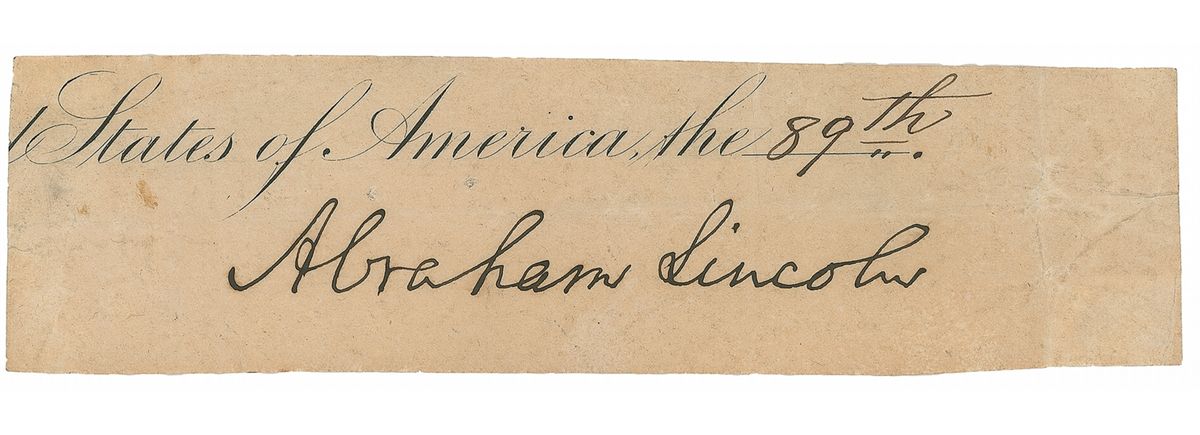 States of America, the 89th.
Abraham Lincoln